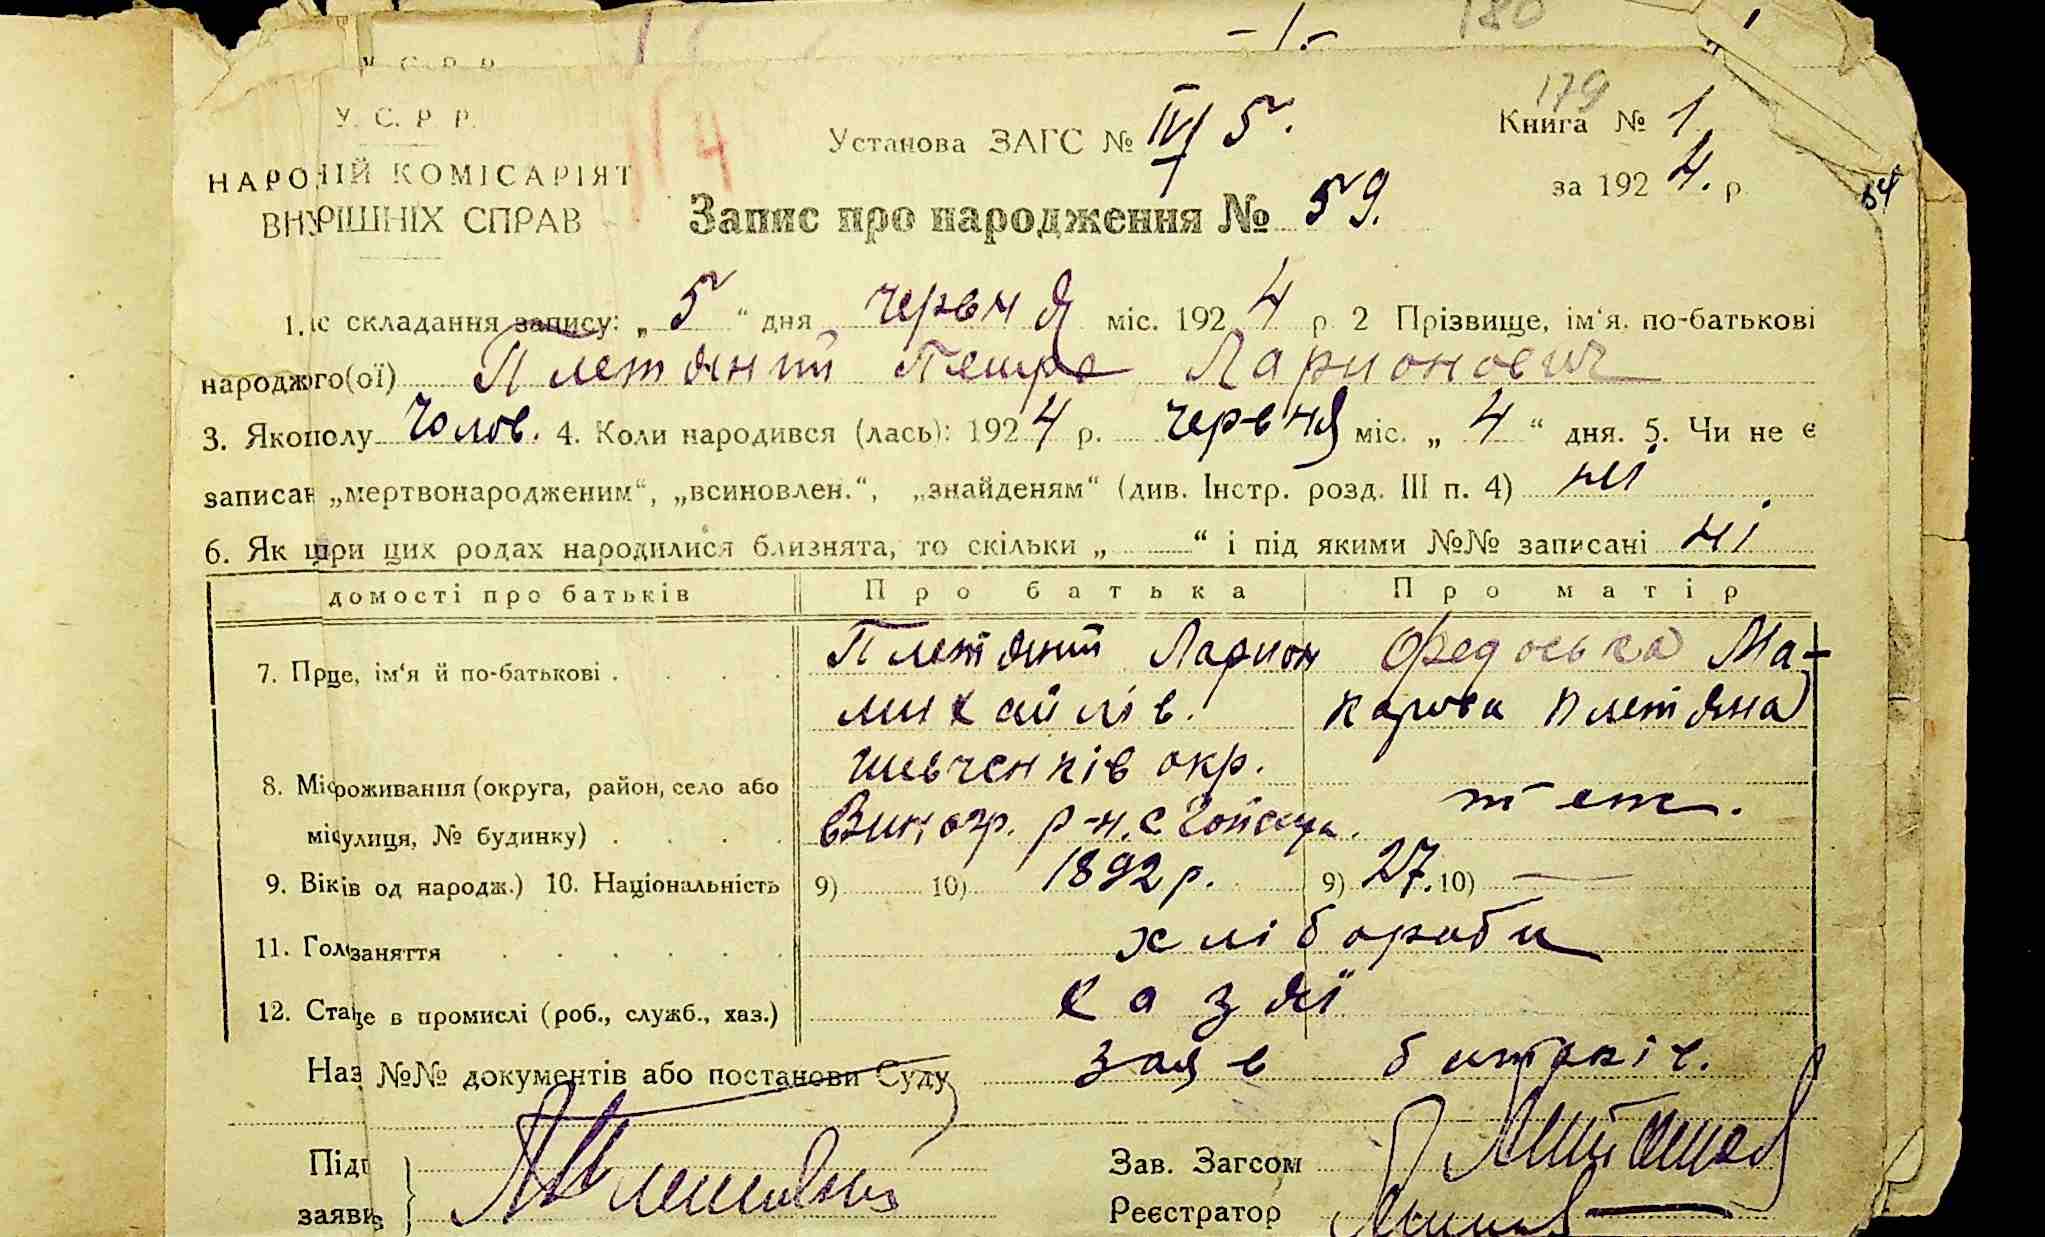 -1.-
180
У. С. Р. Р.
179
У. С. Р. Р.
Установа ЗАГС № IV/5.
Книга № 1
НАРО ІЙ КОМІСАРІЯТ
за 1924. р.
54
ВНУ РІШНІХ СПРАВ
Запис про народження № 59.
1. іс складання запису: „5“ дня червня міс. 1924 р 2 Прізвище, ім‘я, по-батькові
народж ого(ої) Плетяний Петро Ларионович
3. Яко полу Чолов. 4. Коли народився (лась): 1924 р. червня міс. „4“ дня. 5. Чи не є
записан „мертвонародженим“, „всиновлен.“, „знайденям“ (див. Інстр. розд. III п. 4) ні
6. Як при цих родах народилися близнята, то скільки „ “ і під якими №№ записані ні
домості про батьків Про батька Про матір
Плетяний Ларион Федоська Ма-
7. Пр ще, ім‘я й по-батькові . . . . михайлів. карова плетяна
шевченків окр.
8. Міс роживання (округа, район, село або
Виногр. р-н. с теж.
міс улиця, № будинку) . . . .
9. Вік ів од народж.) 10. Національність 9) 10) 1892 р. 9) 27. 10) —
11. Гол заняття . . . . . . хлібороби
12. Ста ще в промислі (роб., служб., хаз.) хазяї
Наз №№ документів або постанови Суду заяв батьків.
Під
Зав. Загсом
заяви
Реєстратор